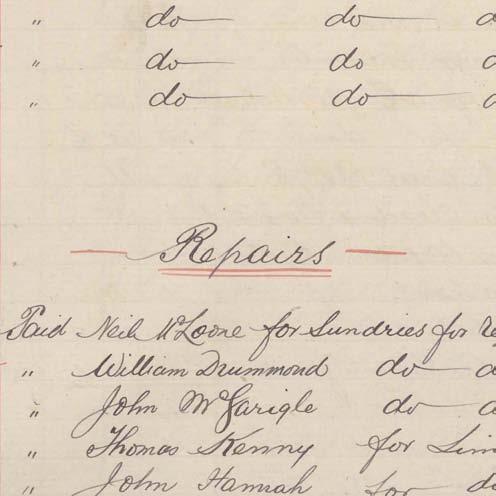 " do do
" do do
" do do
Repairs
Paid Neil McLoone for Sundries for
" William Drummond do
" John McGarigle do
" Thomas Kenny for
" John Hamrah for